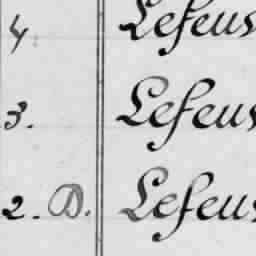 4. Lefeus
3. Lefeus
2. D. Lefeus